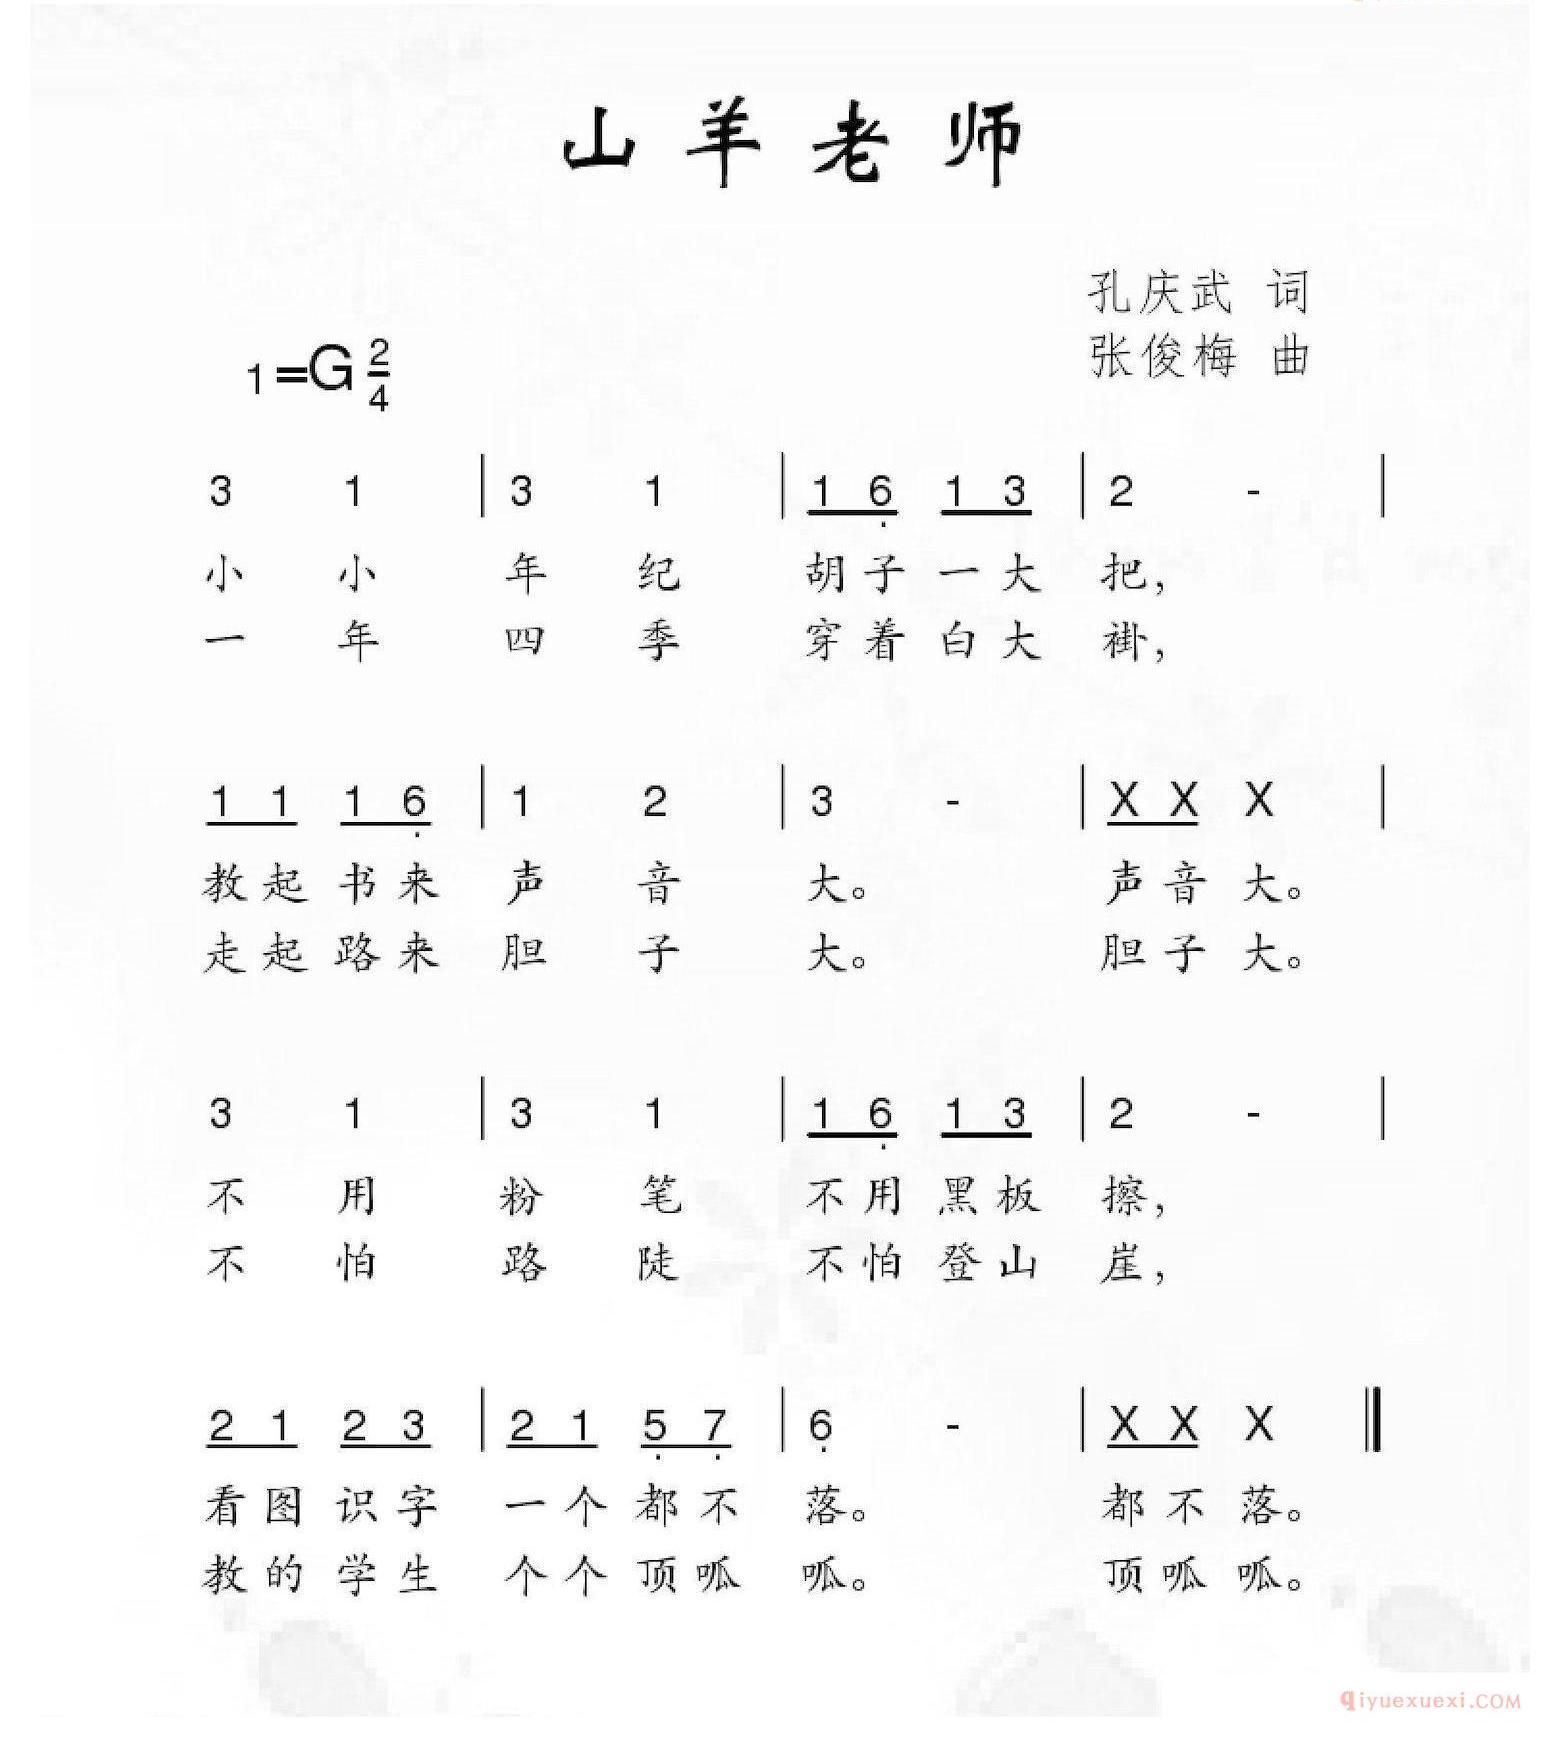 山羊老师
孔庆武 词
张俊梅 曲
1=G 2/4
3 1 | 3 1 | 1 6̣ 1 3 | 2 - |
小 小 年 纪 胡 子 一 大 把，
一 年 四 季 穿 着 白 大 褂，
1 1 1 6̣ | 1 2 | 3 - | X X X |
教 起 书 来 声 音 大。 声 音 大。
走 起 路 来 胆 子 大。 胆 子 大。
3 1 | 3 1 | 1 6̣ 1 3 | 2 - |
不 用 粉 笔 不 用 黑 板 擦，
不 怕 路 陡 不 怕 登 山 崖，
2 1 2 3 | 2 1 5̣ 7̣ | 6̣ - | X X X ‖
看 图 识 字 一 个 都 不 落。 都 不 落。
教 的 学 生 个 个 顶 呱 呱。 顶 呱 呱。
qiyuexuexi.COM